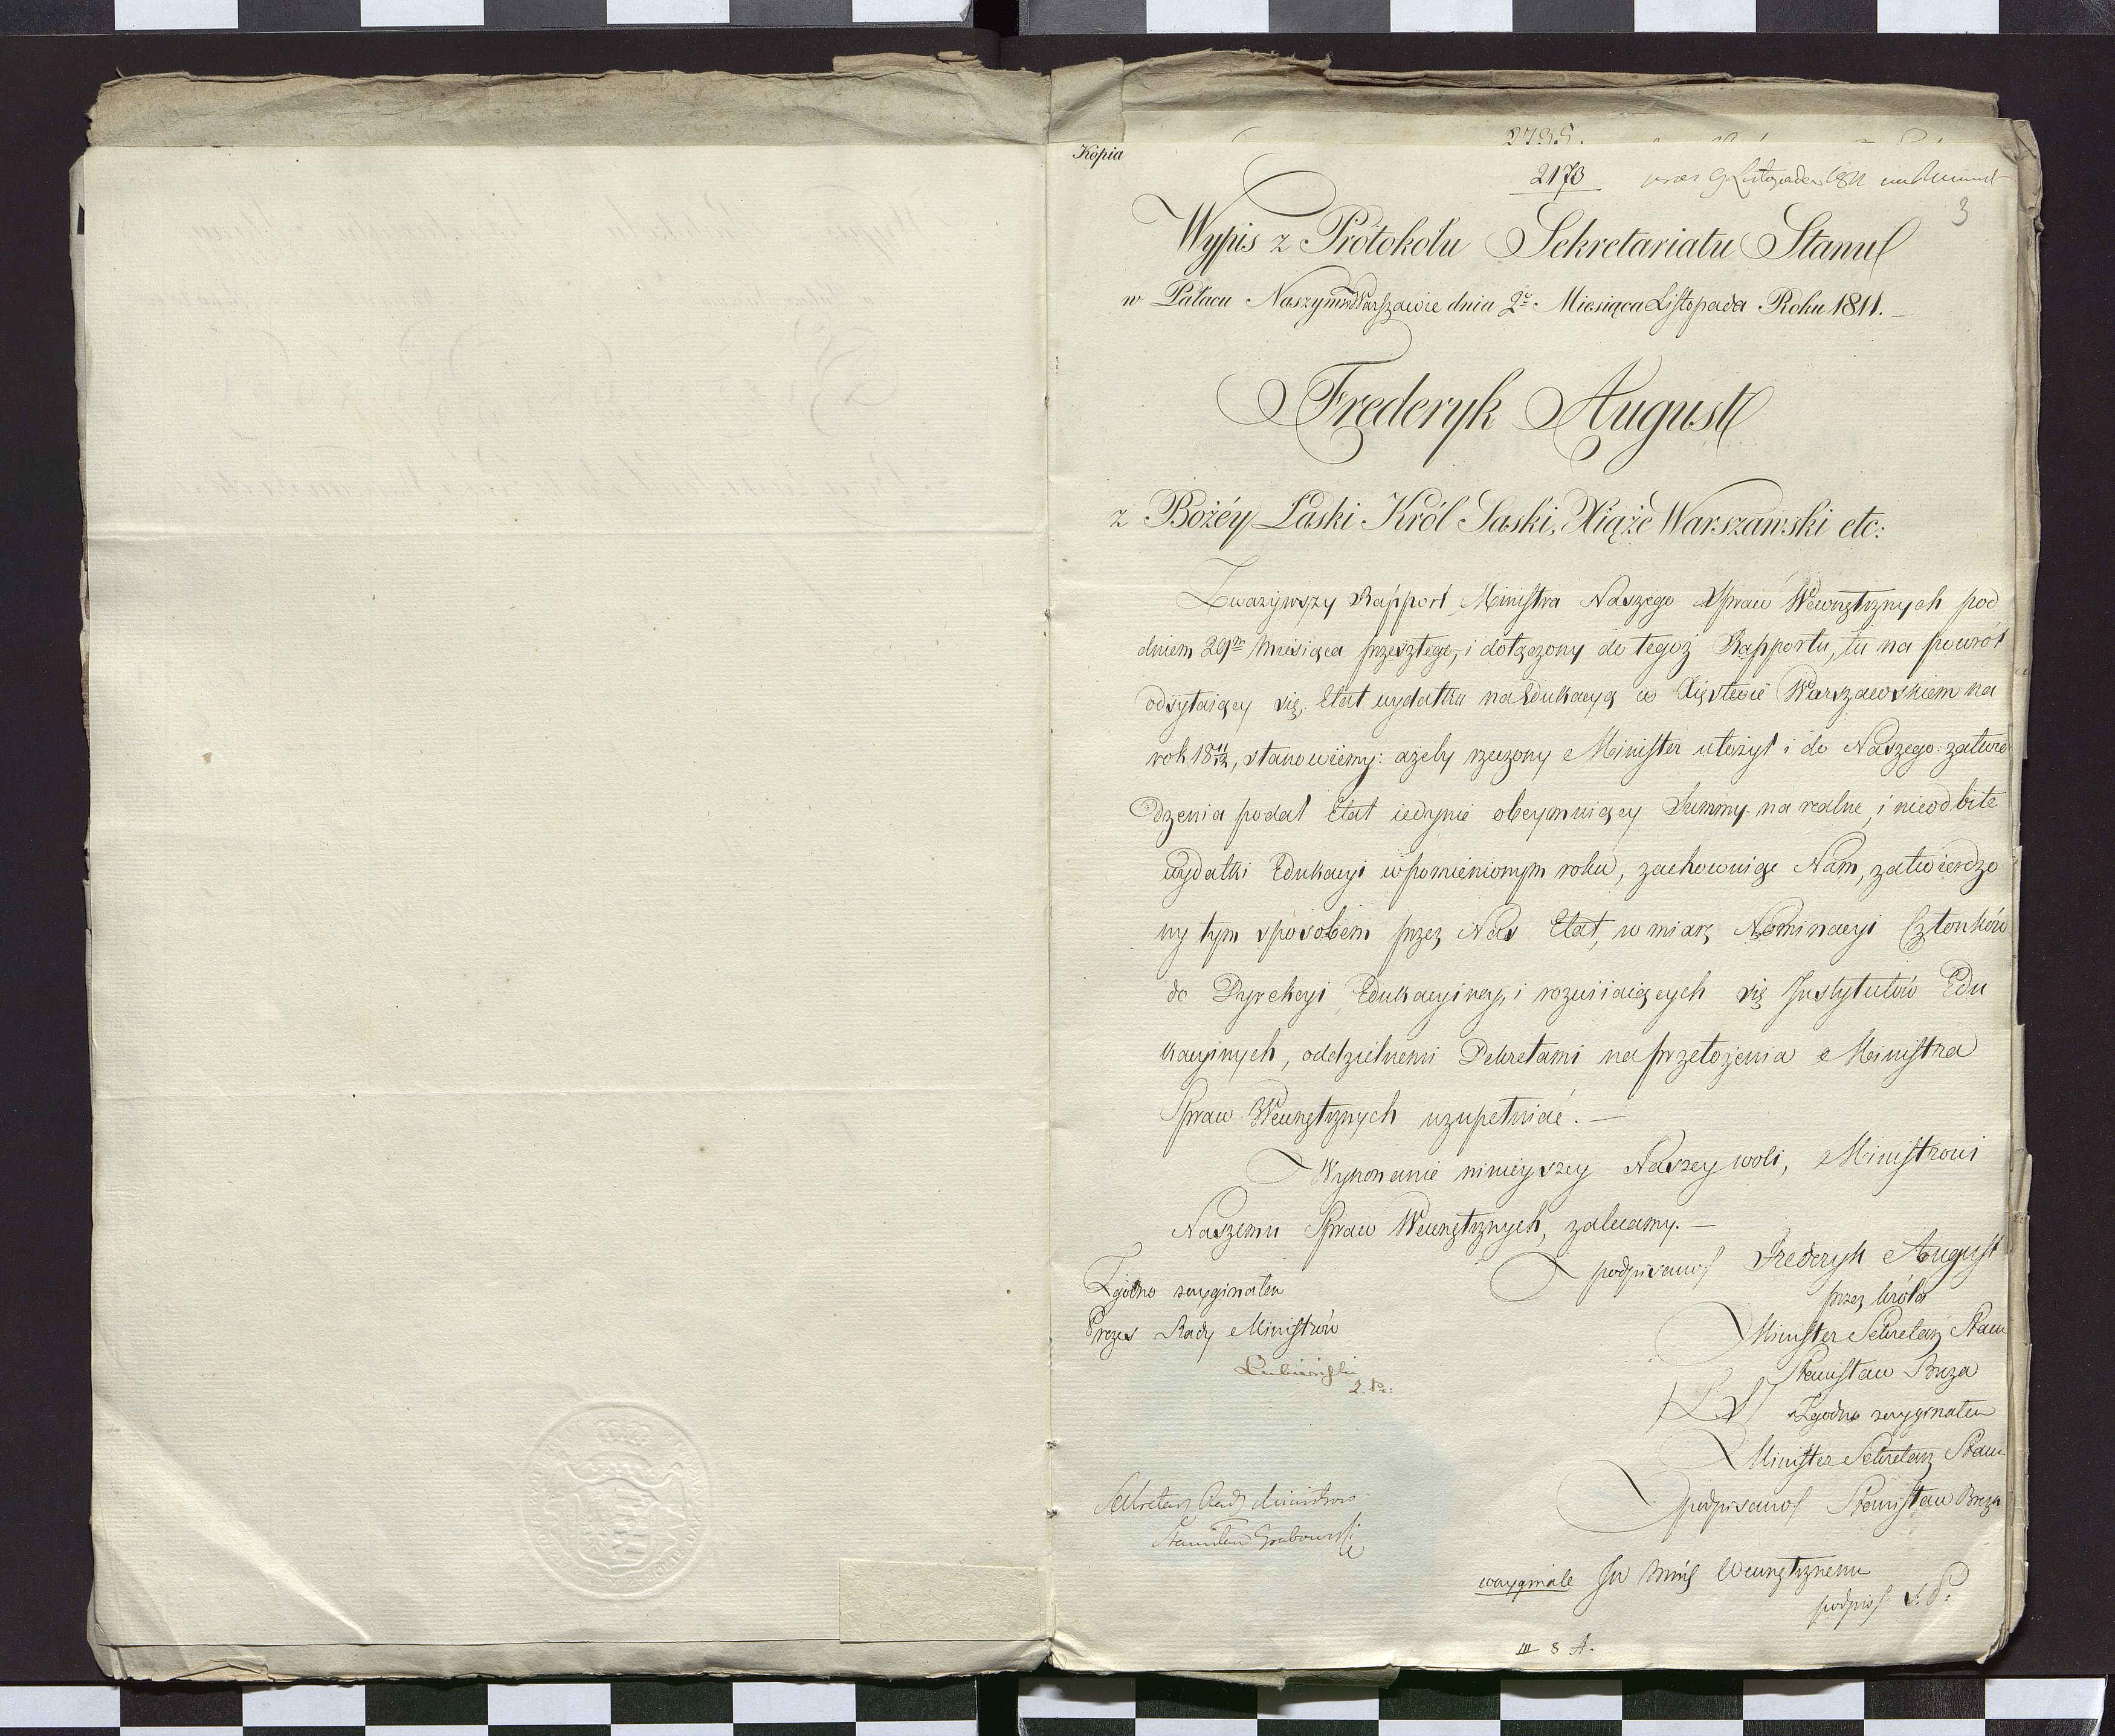 2735.
Kopia
2173 9 Listopada 1811
3
Wypis z Protokółu Sekretariatu Stanu
w Pałacu Naszym w Warszawie dnia 2º Miesiąca Listopada Roku 1811.
Frederyk August
z Bożéy Łaski Król Saski, Xiąże Warszawski etc:
Zwazywszy Rapport Ministra Naszego Spraw Wewnętrznych pod
dniem 29m miesiąca przeszłego, i dołączony do tegoż Rapportu, tu na powrót
odsyłaiący się, Etat wydatku na Edukacyą w Xięstwie Warszawskiem na
rok 18 11/12, stanowiemy: ażeby rzeczony Minister ułożył i do Naszego zatwier
dzenia podał Etat iedynie obeymuiący Summy na realne, i nieodbite
wydatki Edukacyi wpomienionym roku, zachowuiąc Nam, zatwierdzo
ny tym sposobem przez Nas Etat, w miarę Nominacyi Członków
do Dyrekcyi Edukacyiney, i rozwiiaiących się Instytutów Edu
kacyinych, oddzielnemi Dekretami na przełożenia Ministra
Spraw Wewnętrznych uzupełniać. —
Wykonanie ninieyszey Naszey woli, Ministrowi
Naszemu Spraw Wewnętrznych, zalecamy. —
podpisano Frederyk August
przez króla
Minister Sekretarz Stanu
Stanisław Breza
L S Zgodno z oryginałem
Minister Sekretarz Stanu
podpisano Stanisław Breza
Zgodno z oryginałem
Prezes Rady Ministrów
Lubieński
Sekretarz Rady Ministrów
Stanisław Grabowski
w oryginale Wewnętrznemu
podpis S. P.
III 8 A.